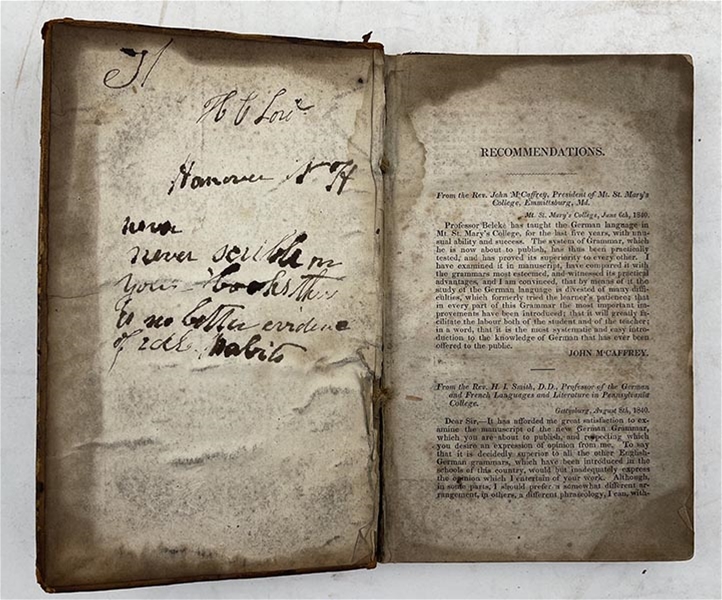 H C Lord
Hanover N H
never
never scribble in
your books there
is no better evidence
of idle habits
RECOMMENDATIONS.
From the Rev. John McCaffrey, President of Mt. St. Mary's
College, Emmittsburg, Md.
Mt. St. Mary's College, June 6th, 1840.
Professor Beleke has taught the German language in
Mt. St. Mary's College, for the last five years, with unu-
sual ability and success. The system of Grammar, which
he is now about to publish, has thus been practically
tested, and has proved its superiority to every other. I
have examined it in manuscript, have compared it with
the grammars most esteemed, and witnessed its practical
advantages, and I am convinced, that by means of it the
study of the German language is divested of many diffi-
culties, which formerly tried the learner's patience; that
in every part of this Grammar the most important im-
provements have been introduced; that it will greatly fa-
cilitate the labour both of the student and of the teacher;
in a word, that it is the most systematic and easy intro-
duction to the knowledge of German that has ever been
offered to the public.
JOHN McCAFFREY.
From the Rev. H. I. Smith, D.D., Professor of the German
and French Languages and Literature in Pennsylvania
College.
Gettysburg, August 8th, 1840.
Dear Sir,—It has afforded me great satisfaction to ex-
amine the manuscript of the new German Grammar,
which you are about to publish, and respecting which
you desire an expression of opinion from me. To say
that it is decidedly superior to all the other English-
German grammars, which have been introduced in the
schools of this country, would but inadequately express
the opinion which I entertain of your work. Although,
in some parts, I should prefer a somewhat different ar-
rangement, in others, a different phraseology, I can, with-